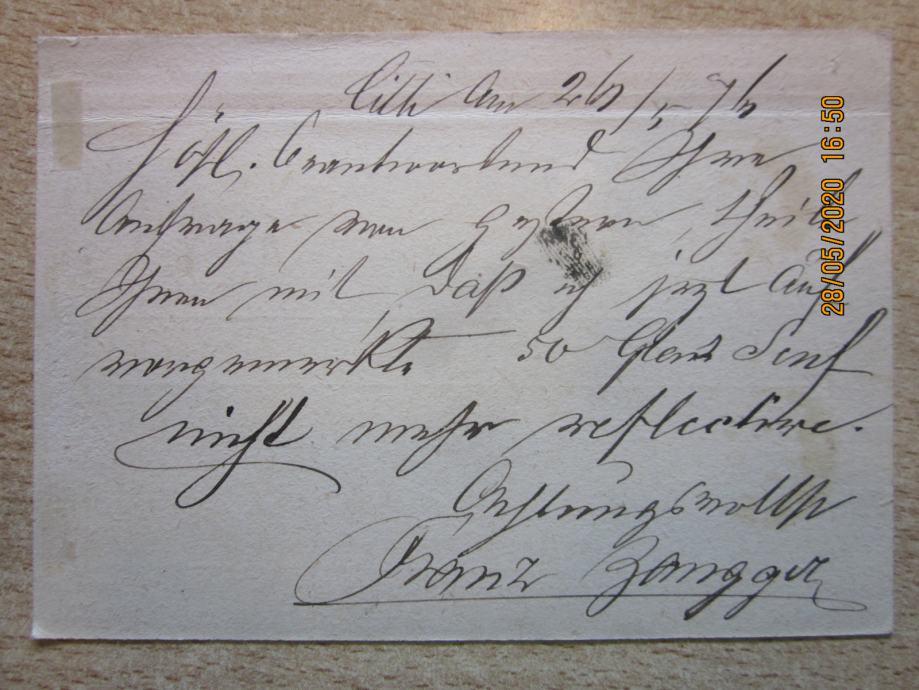 Cilli am 26/5 7
Höfl. Beantwortend Ihre
Anfrage von gestern, theile
Ihnen mit daß ich jezt auf
vorgemerkte 50 Glas Senf
nicht mehr reflectire.
Achtungsvollst
Franz Zangger
28/05/2020 16:50